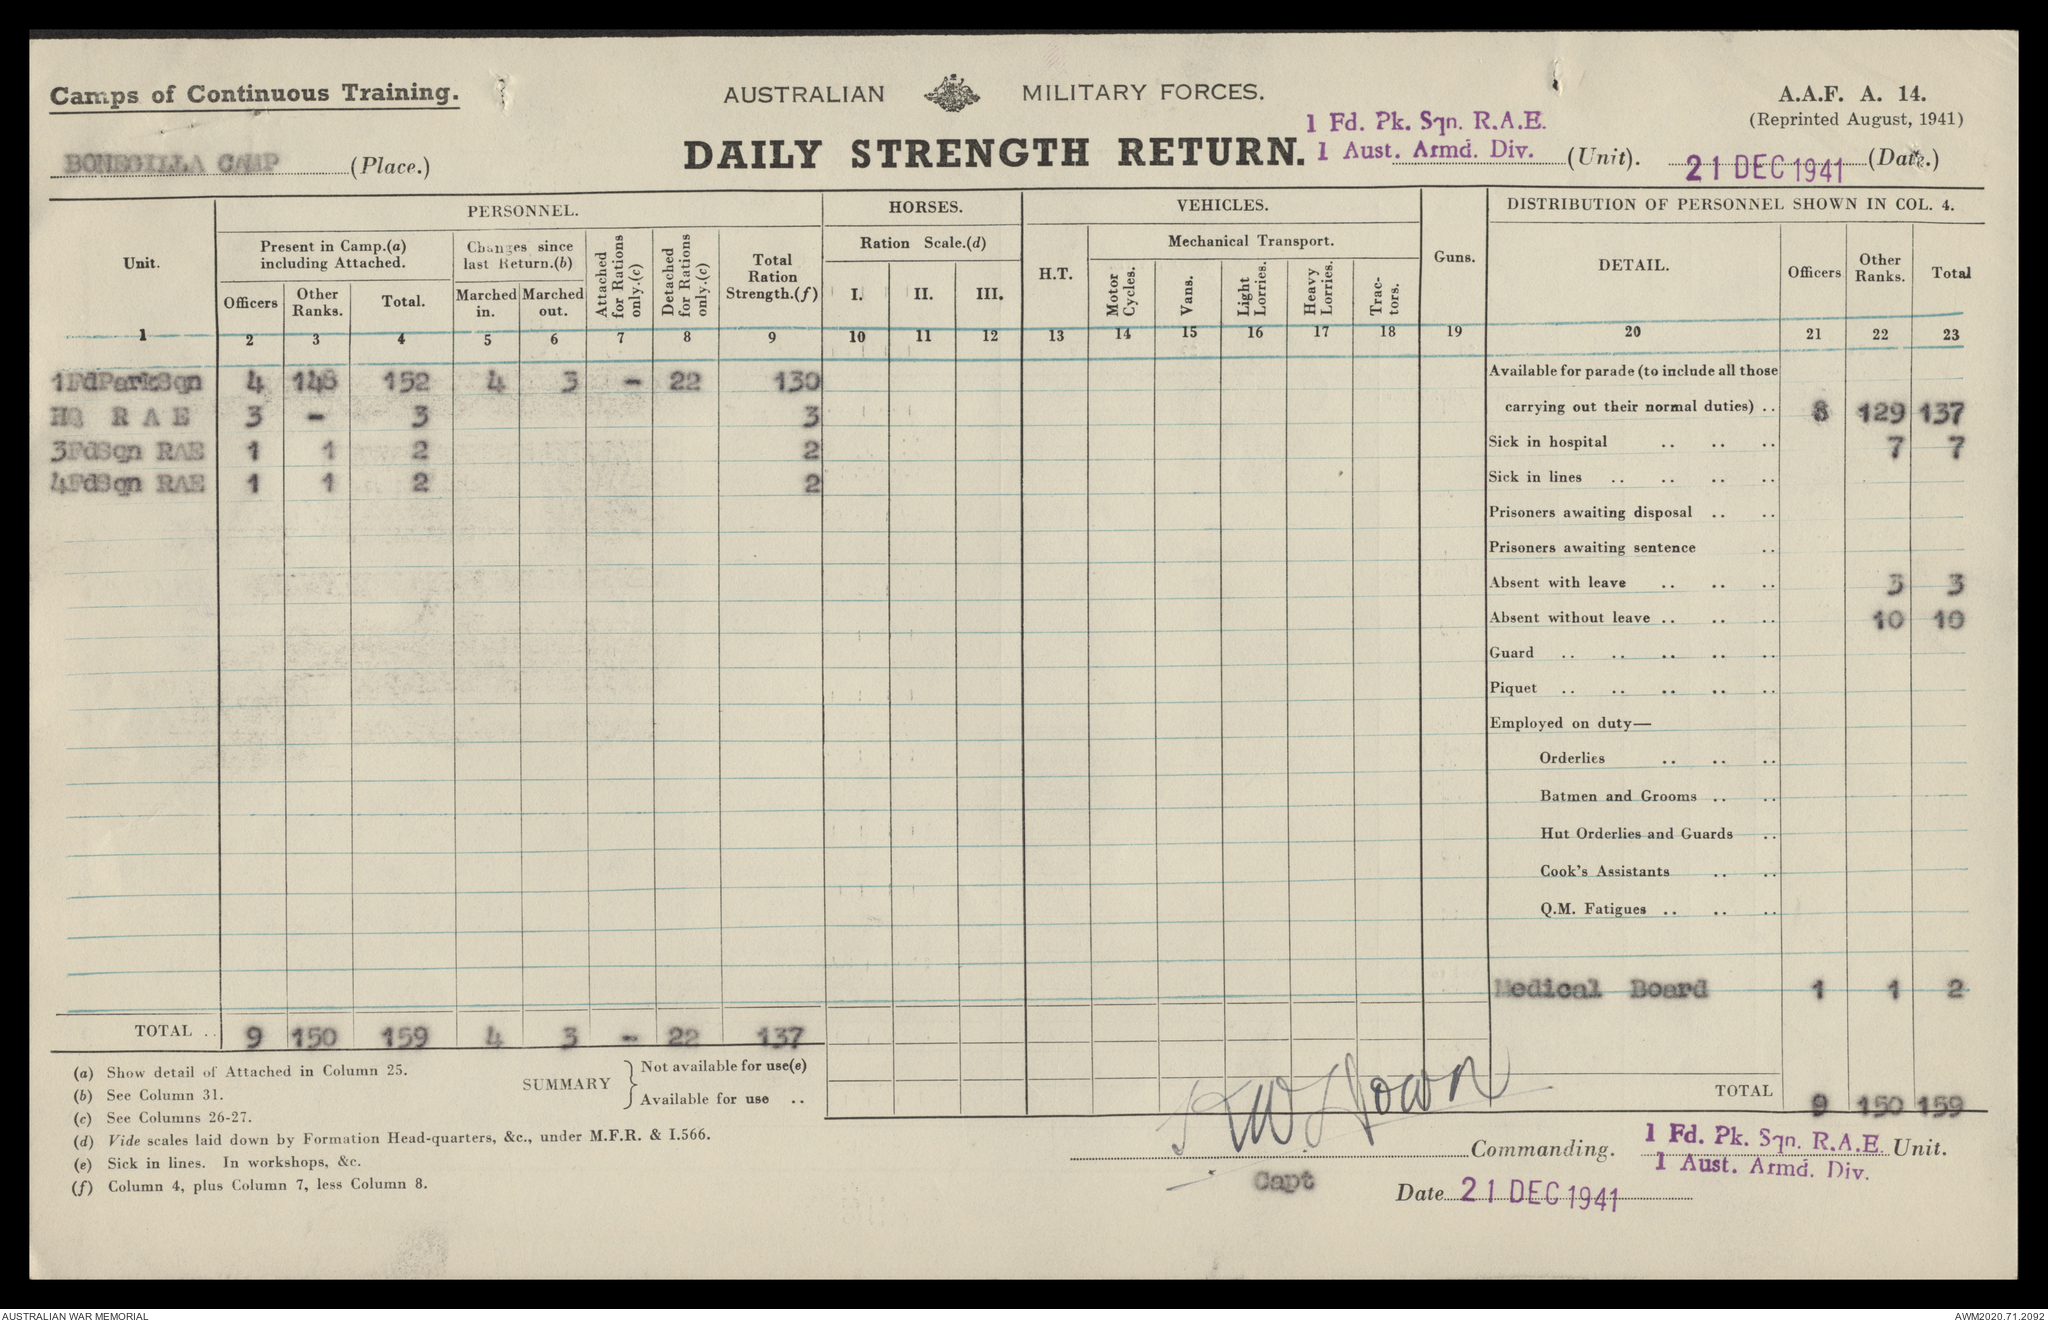 Camps of Continuous Training.
AUSTRALIAN MILITARY FORCES.
A.A.F. A. 14.
(Reprinted August, 1941)
BONEGILLA CAMP (Place.)
DAILY STRENGTH RETURN.
1 Fd. Pk. Sqn. R.A.E.
1 Aust. Armd. Div. (Unit).
21 DEC 1941 (Date.)
Unit.
PERSONNEL.
HORSES.
VEHICLES.
Guns.
DISTRIBUTION OF PERSONNEL SHOWN IN COL. 4.
Present in Camp.(a) including Attached.
Changes since last Return.(b)
Attached for Rations only.(c)
Detached for Rations only.(c)
Total Ration Strength.(f)
Ration Scale.(d)
H.T.
Mechanical Transport.
DETAIL.
Officers
Other Ranks.
Total
Officers
Other Ranks.
Total.
Marched in.
Marched out.
I.
II.
III.
Motor Cycles.
Vans.
Light Lorries.
Heavy Lorries.
Trac-tors.
1 2 3 4 5 6 7 8 9 10 11 12 13 14 15 16 17 18 19 20 21 22 23
1FdParkSqn 4 148 152 4 3 - 22 130
HQ R A E 3 - 3 3
3FdSqn RAE 1 1 2 2
4FdSqn RAE 1 1 2 2
TOTAL .. 9 150 159 4 3 - 22 137
Available for parade (to include all those
carrying out their normal duties) .. 8 129 137
Sick in hospital .. .. .. 7 7
Sick in lines .. .. .. ..
Prisoners awaiting disposal .. ..
Prisoners awaiting sentence ..
Absent with leave .. .. .. 3 3
Absent without leave .. .. .. 10 10
Guard .. .. .. .. ..
Piquet .. .. .. .. ..
Employed on duty—
Orderlies .. .. ..
Batmen and Grooms .. ..
Hut Orderlies and Guards ..
Cook's Assistants .. ..
Q.M. Fatigues .. .. ..
Medical Board 1 1 2
TOTAL 9 150 159
(a) Show detail of Attached in Column 25.
(b) See Column 31.
(c) See Columns 26-27.
(d) Vide scales laid down by Formation Head-quarters, &c., under M.F.R. & I.566.
(e) Sick in lines. In workshops, &c.
(f) Column 4, plus Column 7, less Column 8.
SUMMARY
Not available for use(e)
Available for use ..
Commanding.
1 Fd. Pk. Sqn. R.A.E. Unit.
1 Aust. Armd. Div.
Capt
Date 21 DEC 1941
AUSTRALIAN WAR MEMORIAL
AWM2020.71.2092